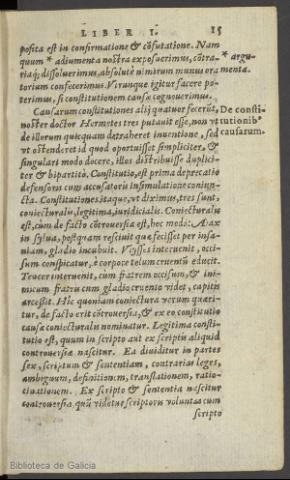 LIBER I. 15
posita est in confirmatione & cõfutatione. Nam
quum * adiumenta nostra exposuerimus, cõtra- * argu-
riaq́; dissoluerimus, absolutè nimirum munus ora menta.
torium confecerimus. Vtrunque igitur facere po-
terimus, si constitutionem causæ cognouerimus.
Causarum constitutiones alij quatuor fecerũt, De consti-
noster doctor Hermetes tres putauit esse, non vt tutionib⁹
de illorum quicquam detraheret inuentione, sed causarum.
vt ostenderet id quod oportuisset simpliciter, &
singulari modo docere, illos distribuisse duplici-
ter & bipartitò. Constitutio, est prima deprecatio
defensoris cum accusatoris insimulatione coniun-
cta. Constitutiones itaque, vt diximus, tres sunt,
coniecturalis, legitima, iuridicialis. Coniecturalis
est, cùm de facto cõtrouersia est, hoc modo: Aiax
in sylua, postquam resciuit quæ fecisset per insa-
niam, gladio incubuit. Vlysses interuenit, occi-
sum conspicatur, è corpore telum cruentũ educit.
Teucer interuenit, cum fratrem occisum, & ini-
micum fratris cum gladio cruento videt, capitis
arcessit. Hic quoniam coniectura verum quæri-
tur, de facto erit cõtrouersia, & ex eo constitutio
causæ coniecturalis nominatur. Legitima consti-
tutio est, quum in scripto aut ex scriptis aliquid
controuersiæ nascitur. Ea diuiditur in partes
sex, scriptum & sententiam, contrarias leges,
ambiguum, definitionem, translationem, ratio-
cinationem. Ex scripto & sententia nascitur
controuersia, quũ videtur scriptoris voluntas cum
scripto
Biblioteca de Galicia